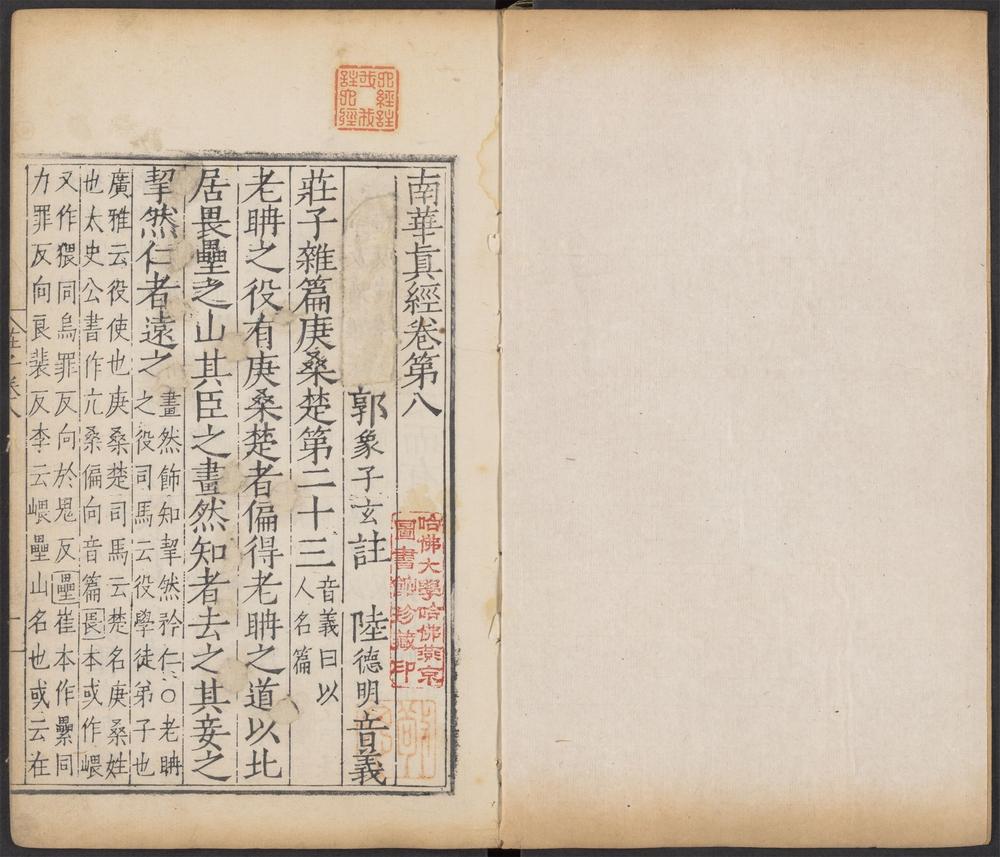 南華真經卷第八
郭象子玄註 陸德明音義
莊子雜篇庚桑楚第二十三 音義曰以
人名篇
老聃之役有庚桑楚者偏得老聃之道以北
居畏壘之山其臣之畫然知者去之其妾之
挈然仁者遠之 畫然飾知挈然矜仁○老聃
之役司馬云役學徒弟子也
廣雅云役使也庚桑楚司馬云楚名庚桑姓
也太史公書作亢桑偏向音篇畏本或作嵔
又作猥同烏罪反向於鬼反壘崔本作纍同
力罪反向良裴反李云嵔壘山名也或云在
六經註
我我
註六經
哈佛大學哈佛燕京
圖書館珍藏印